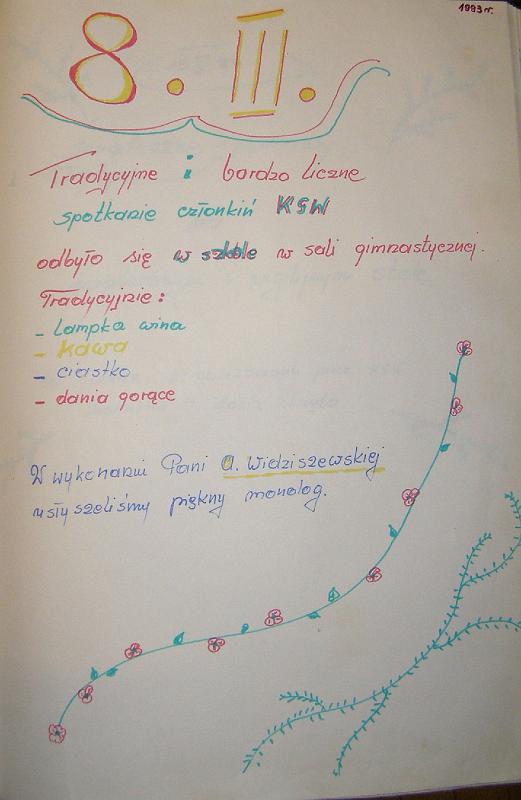 1993 r.
8. III.
Tradycyjne i bardzo liczne
spotkanie członkiń KGW
odbyło się w szkole w sali gimnastycznej.
Tradycyjnie:
- lampka wina
- kawa
- ciastko
- dania gorące
W wykonaniu Pani A. Widziszewskiej
usłyszeliśmy piękny monolog.